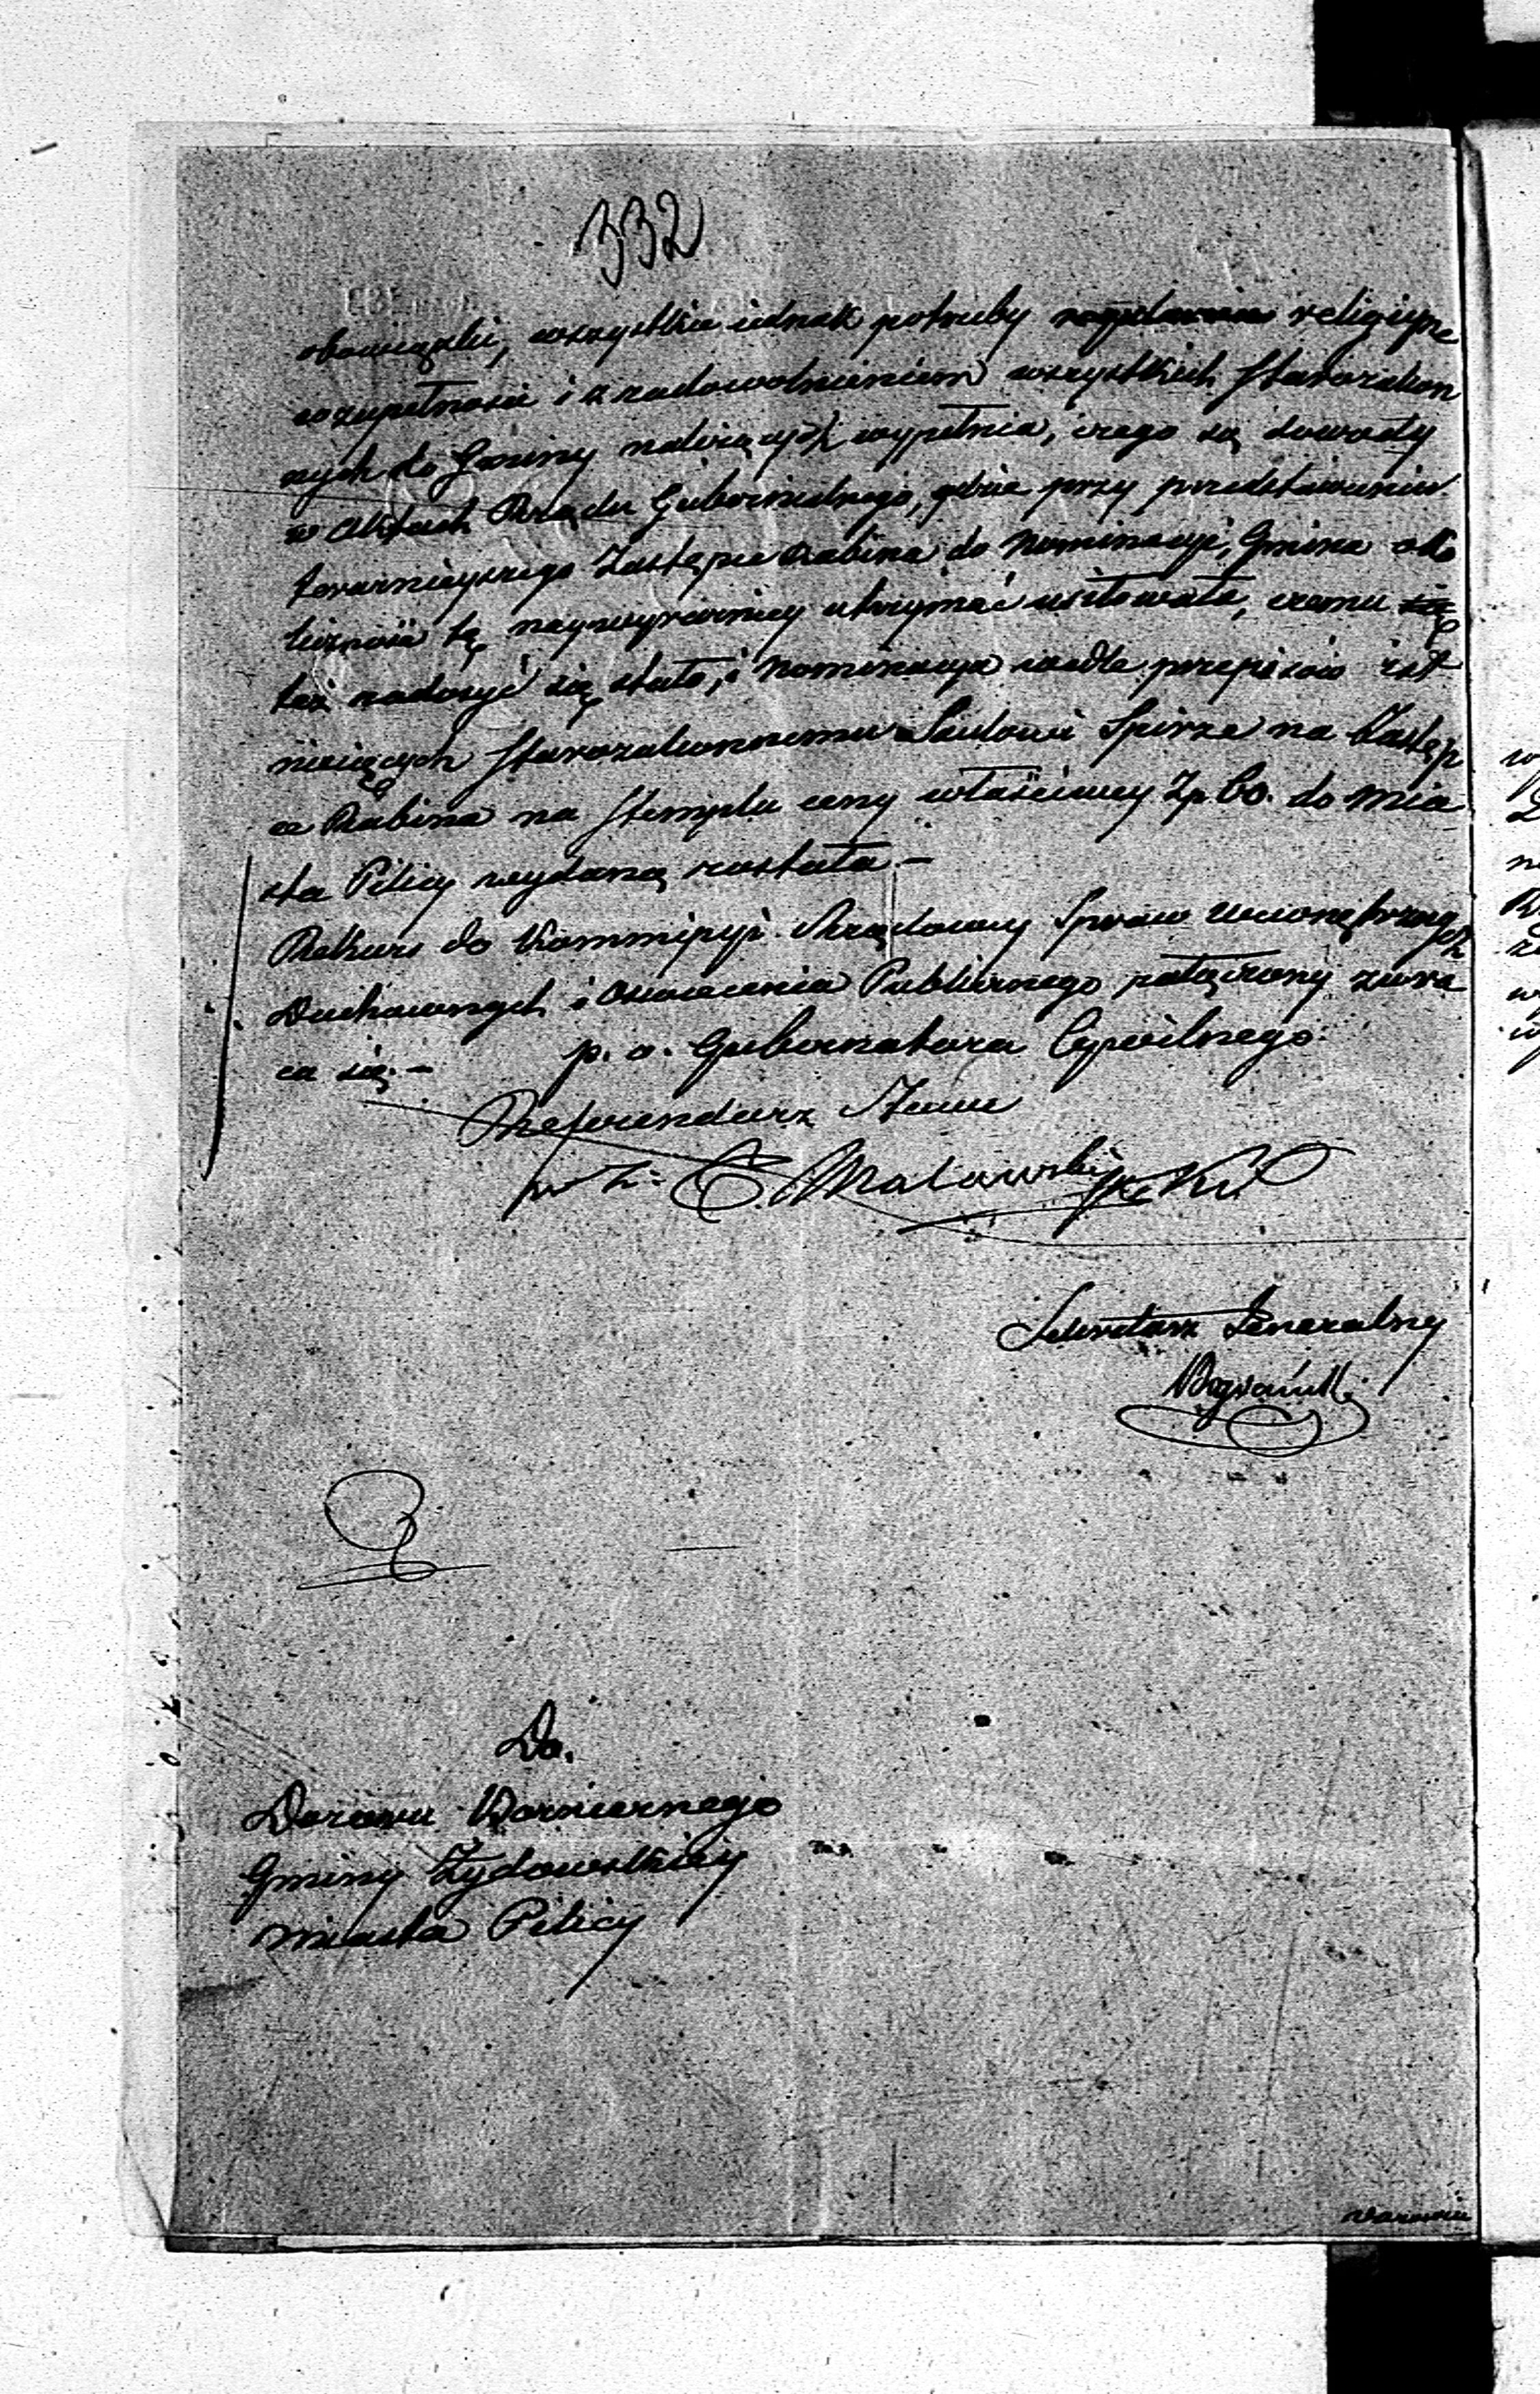 332
obowiązki, wszystkie iednak potrzeby religijne
w zupełności i z zadowolnieniem wszystkich Starozakon
nych do Gminy należących wypełnia, czego są dowody
w Aktach Rządu Gubernialnego, gdzie przy przedstawieniu
terazniejszego Zastępcę Rabina do Nominacyi, Gmina oko
liczność tę naywyrazniey utrzymać usiłowała, czemu
też zadosyć się stało, i Nominacya wedle przepisów ist
nieiących Starozakonnemu Spirze na Zastęp
cę Rabina na Stemplu ceny właściwey Zp. 60. do mia
sta Pilicy wydaną została —
Rekurs do Kommissyi Rządowey Spraw Wewnętrznych
Duchownych i Oświecenia Publicznego załączony zwra
ca się. —
p. o. Gubernatora Cywilnego.
Referendarz Stanu
w Z:
Sekretarz Jeneralny
Do.
Dozoru Bożnicznego
Gminy Żydowskiey
miasta Pilicy